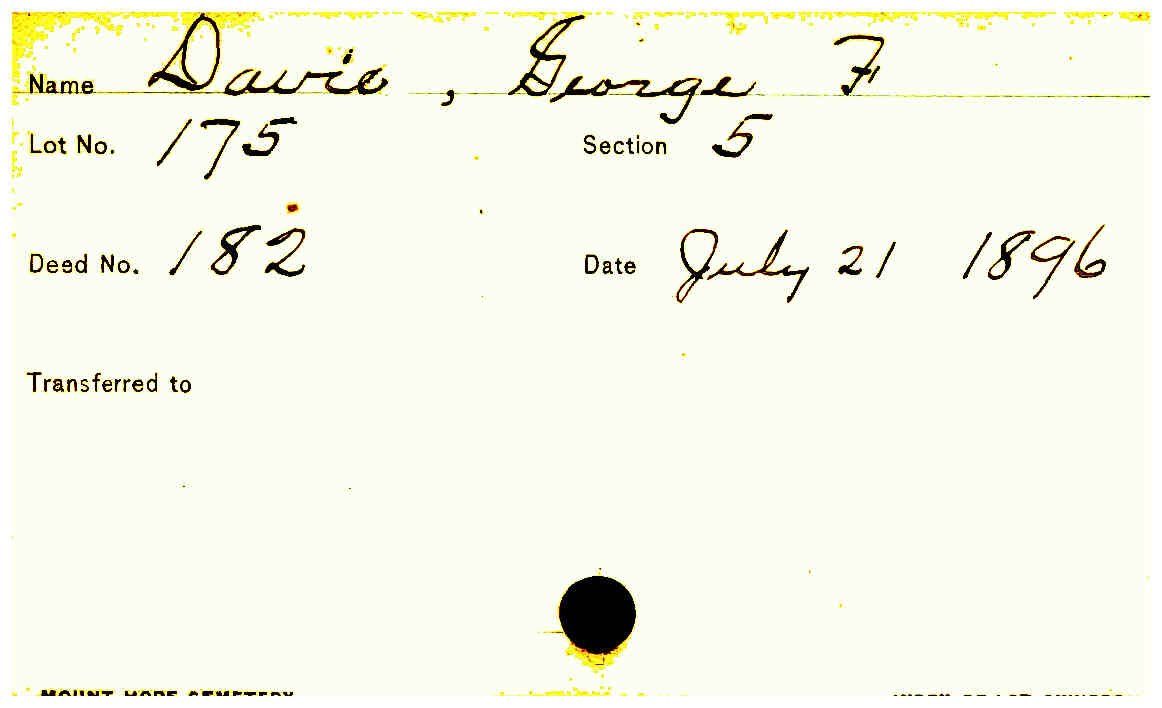 Name Davis, George F
Lot No. 175 Section 5
Deed No. 182 Date July 21 1896
Transferred to
MOUNT HOPE CEMETERY INDEX OF LOT OWNERS